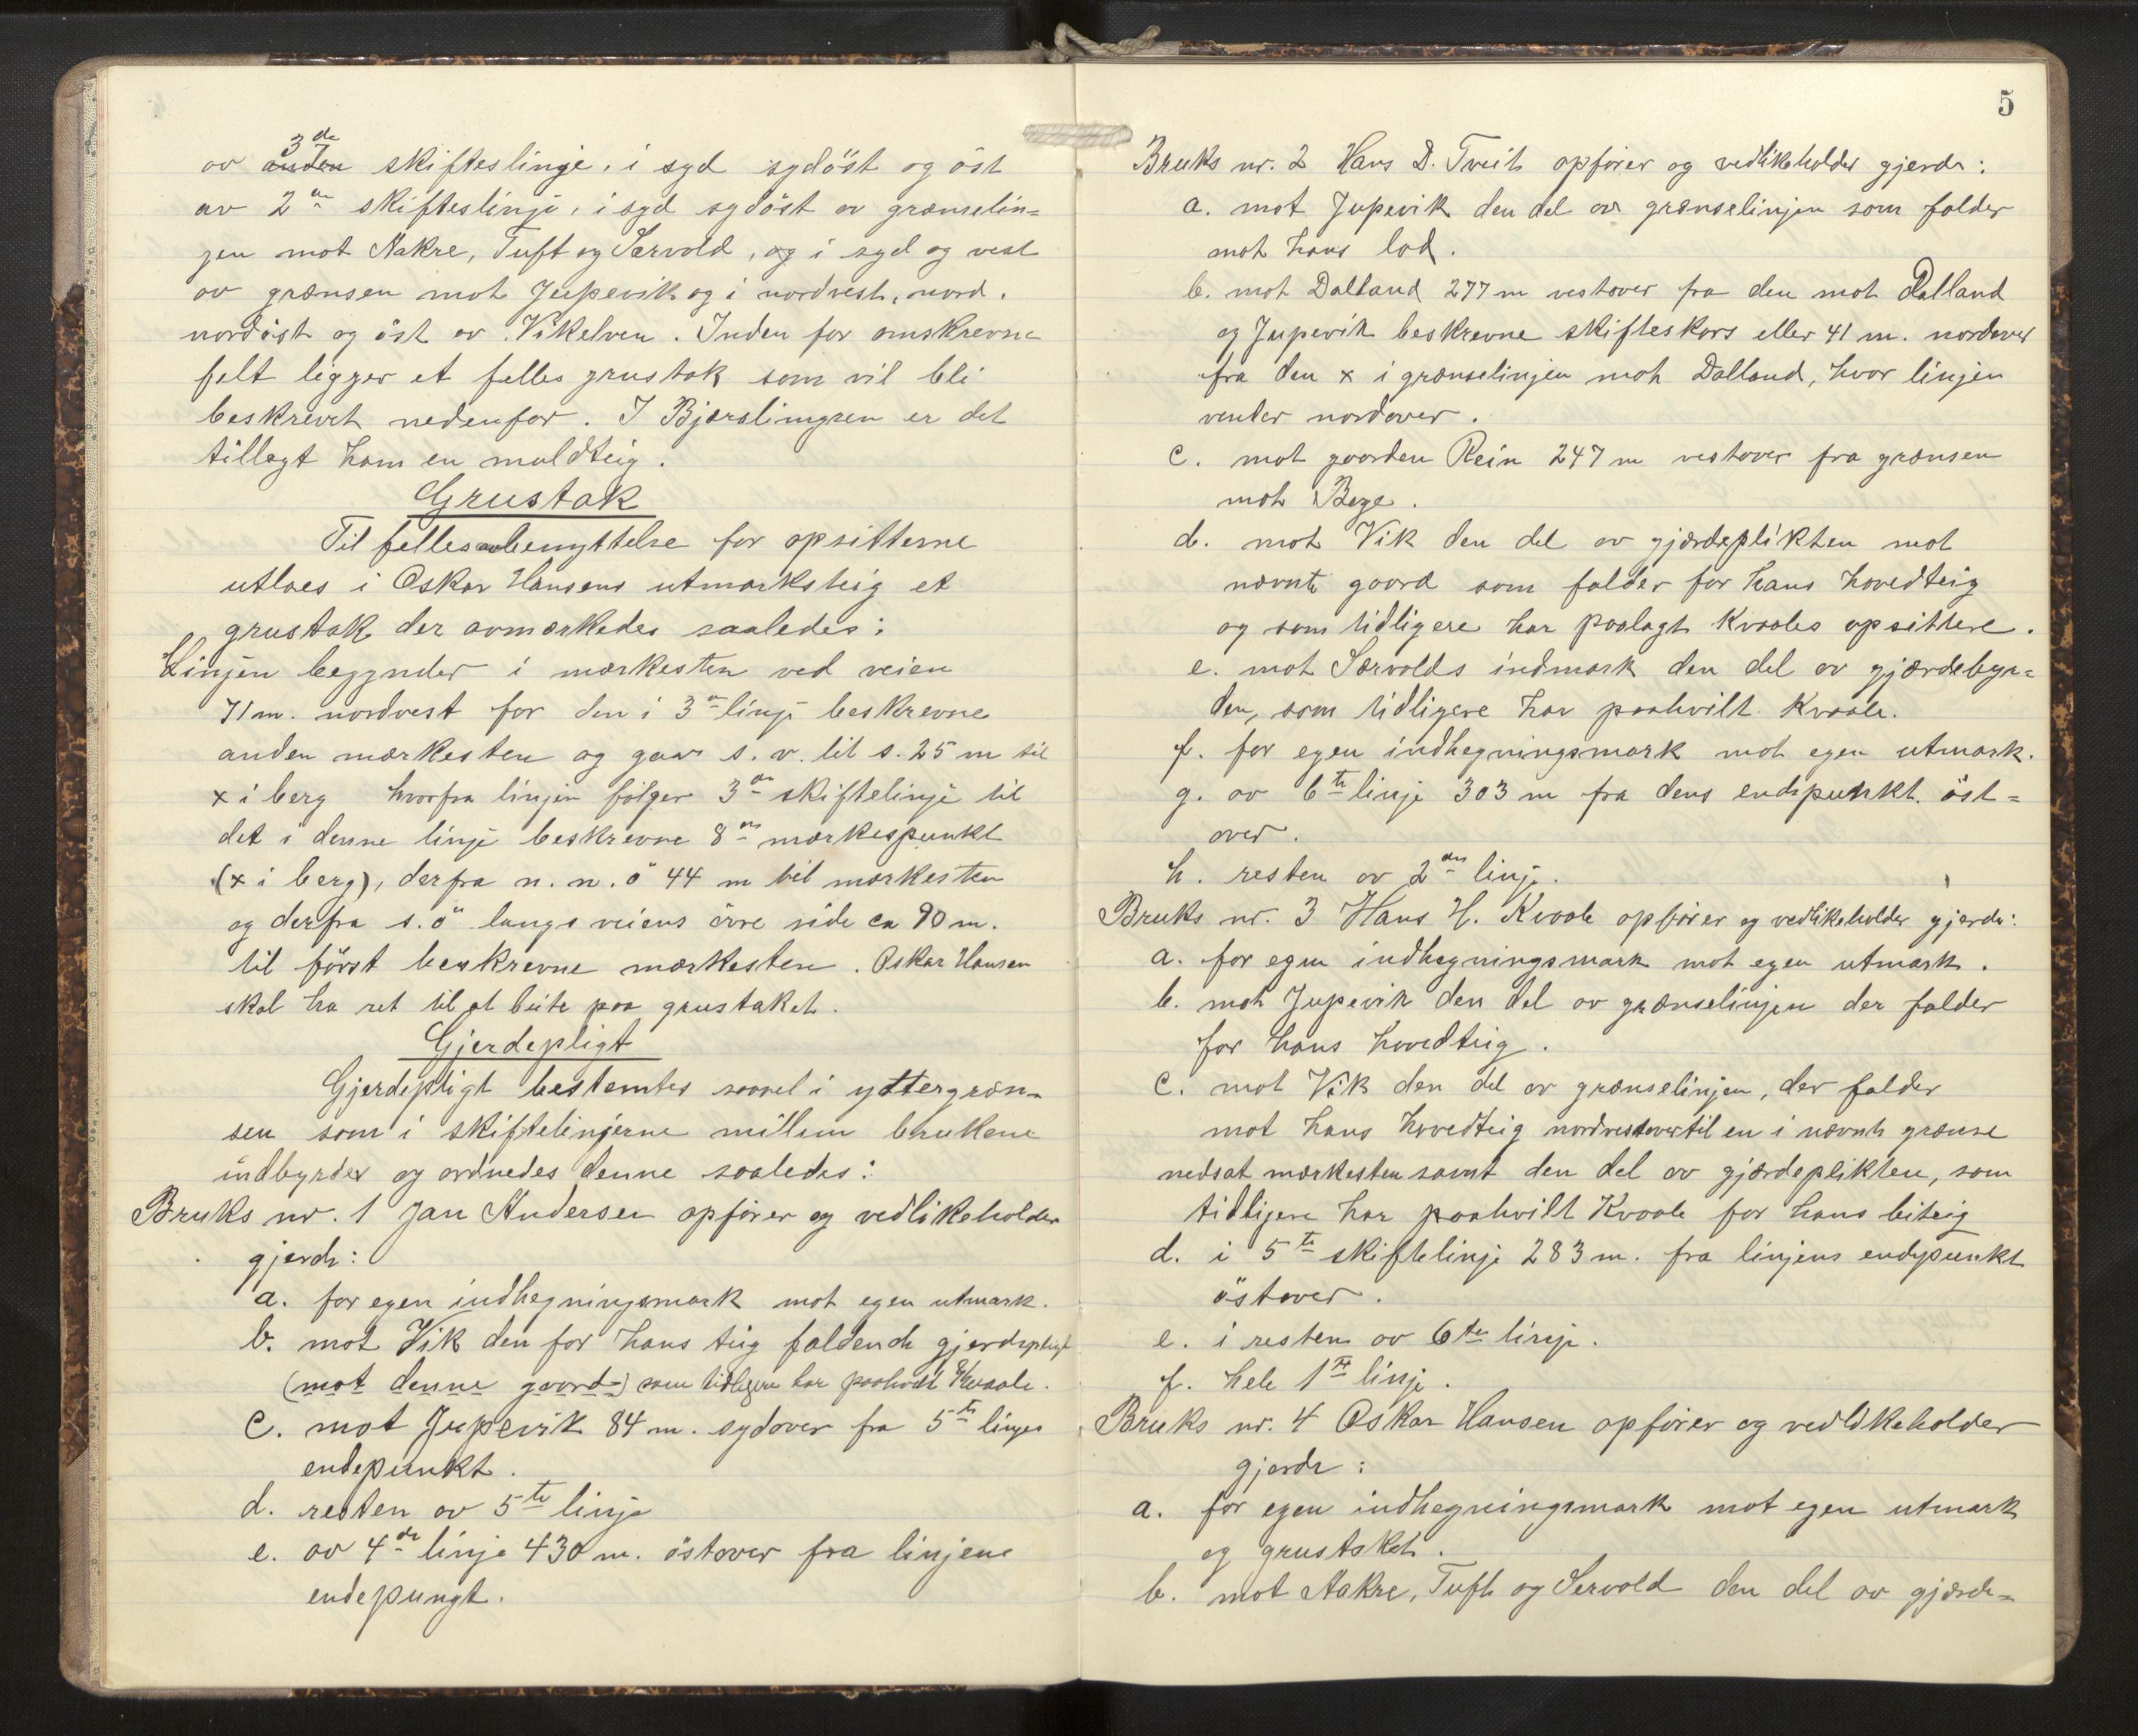 3de
av anden skifteslinje, i syd sydöst og öst
av 2en skifteslinje, i syd sydöst av grænselin=
jen mot Aakre, Tuft og Særvold, og i syd og vest
av grænsen mot Jupevik og i nordvest, nord.
nordöst og öst av Vikelven. Inden for omskrevne
felt ligger et felles grustak som vil bli
beskrevet nedenfor. I Bjørslimyren er det
tillagt ham en muldteig.
Grustak
Til felles benyttelse for opsitterne
utlaes i Oskar Hansens utmarksteig et
grustak der avmærkedes saaledes:
Linjen begynder i mærkesten ved veien
71 m. nordvest for den i 3en linje beskrevne
anden mærkesten og gaar s. v. til s. 25 m til
x i berg hvorfra linjen følger 3de skiftelinje til
det i denne linje beskrevne 8de mærkespunkt
(x i berg), derfra n. n. ö 44 m til mærkesten
og derfra s. ö langs veiens övre side ca 90 m.
til först beskrevne mærkesten. Oskar Hansen
skal ha ret til at beite paa grustaket.
Gjerdepligt
Gjerdepligt bestemtes saavel i yttergræn=
sen som i skiftelinjerne mellem brukene
indbyrdes og ordnedes denne saaledes:
Bruks nr. 1 Jan Andersen opfører og vedlikeholder
gjerde:
a. for egen indhegningsmark mot egen utmark.
b. mot Vik den for hans teig faldende gjerdepligt
(mot denne gaard) som tidligere har paahvilt Kvaale.
c. mot Jupevik 84 m. sydover fra 5te linjes
endepunkt.
d. resten av 5te linje
e. av 4de linje 430 m. östover fra linjens
endepungt.
5
Bruks nr. 2 Hans D. Tveit opfører og vedlikeholder gjerde:
a. mot Jupevik den del av grænselinjen som falder
mot hans lod.
b. mot Dalland 277 m vestover fra den mot Dalland
og Jupevik beskrevne skifteskors eller 41 m. nordover
fra den x i grænselinjen mot Dalland, hvor linjen
vender nordover.
c. mot gaarden Rein 247 m vestover fra grænsen
mot Berge.
d. mot Vik den del av gjærdeplikten mot
nævnte gaard som falder for hans hovedteig
og som tidligere har paalagt Kvaales opsittere.
e. mot Særvolds indmark den del av gjærdebyr=
den, som tidligere har paahvilt Kvaale.
f. for egen indhegningsmark mot egen utmark.
g. av 6te linje 303 m fra dens endepunkt öst=
over.
h. resten av 2den linje.
Bruks nr. 3 Hans H. Kvaale opfører og vedlikeholder gjerde:
a. for egen indhegningsmark mot egen utmark.
b. mot Jupevik den del av grænselinjen der falder
for hans hovedteig.
c. mot Vik den del av grænselinjen, der falder
mot hans hovedteig nordvestover til en i nævnte grænse
nedsat mærkesten samt den del av gjærdeplikten, som
tidligere har paahvilt Kvaale for hans biteig
d. i 5te skiftelinje 283 m. fra linjens endepunkt
östover.
e. i resten av 6te linje.
f. hele 1ste linje.
Bruks nr. 4 Oskar Hansen opfører og vedlikeholder
gjerde:
a. for egen indhegningsmark mot egen utmark
og grustaket.
b. mot Aakre, Tuft og Særvold den del av gjærde=